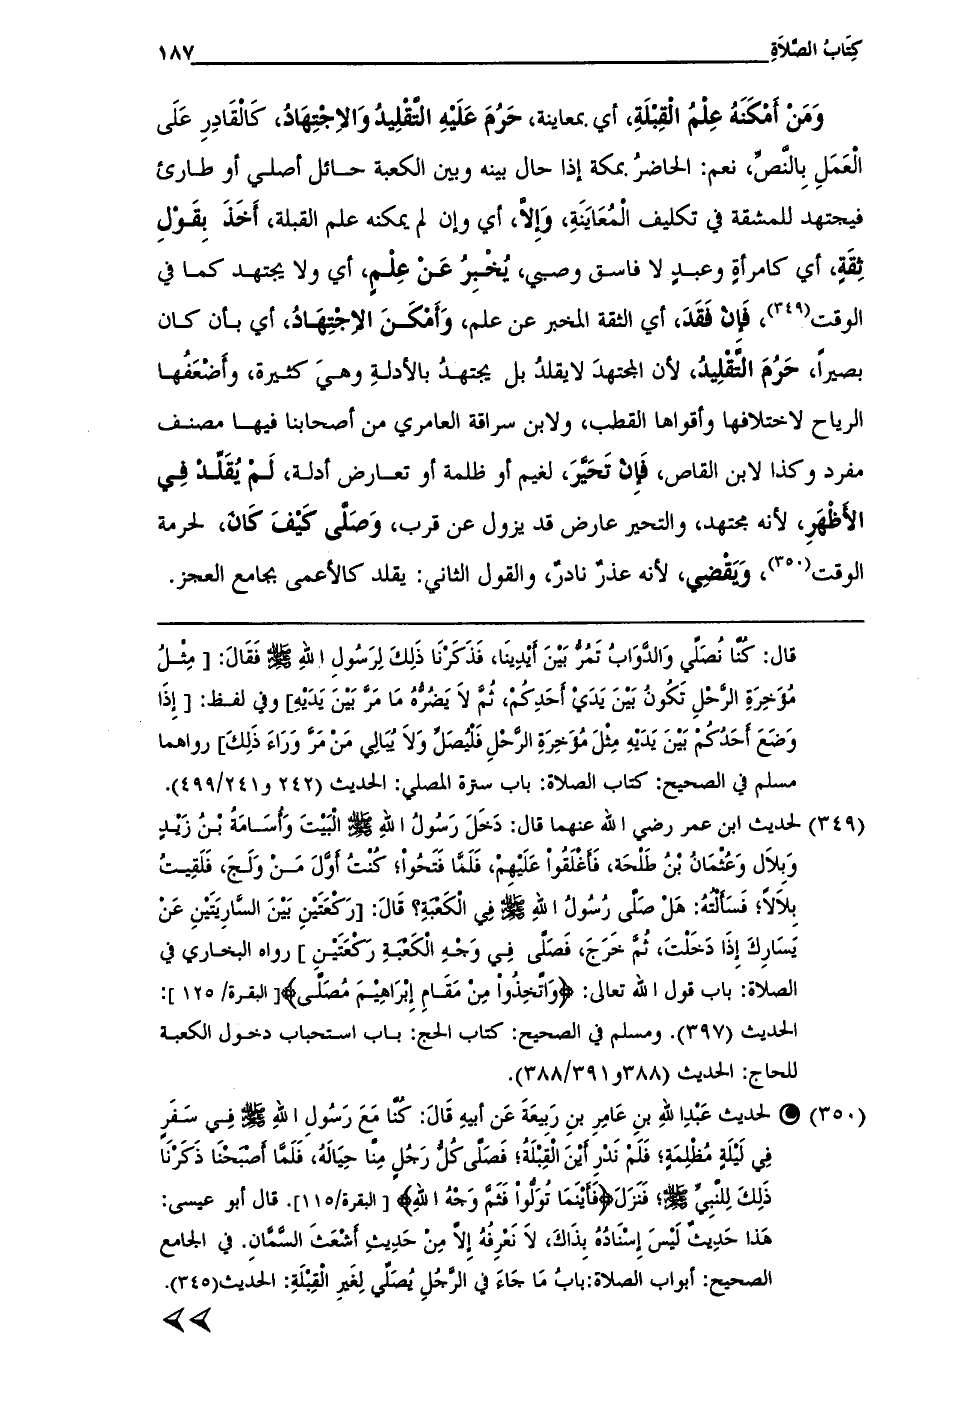 كِتَابُ الصَّلَاةِ ١٨٧
وَمَنْ أَمْكَنَهُ عِلْمُ الْقِبْلَةِ، أي بمعاينة، حَرُمَ عَلَيْهِ التَّقْلِيدُ وَالِاجْتِهَادُ، كَالْقَادِرِ عَلَى
الْعَمَلِ بِالنَّصِّ، نعم: الحاضرُ بمكة إذا حال بينه وبين الكعبة حائل أصلي أو طارئ
فيجتهد للمشقة في تكليف الْمُعَايَنَةِ، وَإِلاَّ، أي وإن لم يمكنه علم القبلة، أَخَذَ بِقَوْلِ
ثِقَةٍ، أي كامرأةٍ وعبدٍ لا فاسق وصبي، يُخْبِرُ عَنْ عِلْمٍ، أي ولا يجتهد كما في
الوقت(٣٤٩)، فَإِنْ فَقَدَ، أي الثقة المخبر عن علم، وَأَمْكَنَ الاِجْتِهَادُ، أي بأن كان
بصيراً، حَرُمَ التَّقْلِيدُ، لأن المجتهدَ لايقلدُ بل يجتهدُ بالأدلةِ وهيَ كثيرة، وأَضْعَفُها
الرياح لاختلافها وأقواها القطب، ولابن سراقة العامري من أصحابنا فيها مصنف
مفرد وكذا لابن القاص، فَإِنْ تَحَيَّرَ، لغيم أو ظلمة أو تعارض أدلة، لَمْ يُقَلِّدْ فِي
الأَظْهَرِ، لأنه مجتهد، والتحير عارض قد يزول عن قرب، وَصَلَّى كَيْفَ كَانَ، لحرمة
الوقت(٣٥٠)، وَيَقْضِي، لأنه عذرٌ نادرٌ، والقول الثاني: يقلد كالأعمى بجامع العجز.
قال: كُنَّا نُصَلِّي وَالدَّوَابُ تَمُرُّ بَيْنَ أَيْدِينَا، فَذَكَرْنَا ذَلِكَ لِرَسُولِ اللهِ ﷺ فَقَالَ: [ مِثْلُ
مُؤَخِرَةِ الرَّحْلِ تَكُونُ بَيْنَ يَدَيْ أَحَدِكُمْ، ثُمَّ لاَ يَضُرُّهُ مَا مَرَّ بَيْنَ يَدَيْهِ] وفي لفظ: [ إِذَا
وَضَعَ أَحَدُكُمْ بَيْنَ يَدَيْهِ مِثْلَ مُؤَخِرَةِ الرَّحْلِ فَلْيُصَلِّ وَلاَ يُبَالِي مَنْ مَرَّ وَرَاءَ ذَلِكَ] رواهما
مسلم في الصحيح: كتاب الصلاة: باب سترة المصلي: الحديث (٢٤٢ و٤٩٩/٢٤١).
(٣٤٩) لحديث ابن عمر رضي الله عنهما قال: دَخَلَ رَسُولُ اللهِ ﷺ الْبَيْتَ وَأُسَامَةُ بْنُ زَيْدٍ
وَبِلاَلٍ وَعُثْمَانُ بْنُ طَلْحَة، فَأَغْلَقُواْ عَلَيْهِمْ، فَلَمَّا فَتَحُواْ؛ كُنْتُ أَوَّلَ مَنْ وَلَجَ، فَلَقِيتُ
بِلاَلاً؛ فَسَأَلْتُهُ: هَلْ صَلَّى رُسُولُ اللهِ ﷺ فِي الْكَعْبَةِ؟ قَالَ: [رَكْعَتَيْنِ بَيْنَ السَّارِيَتَيْنِ عَنْ
يَسَارِكَ إِذَا دَخَلْتَ، ثُمَّ خَرَجَ، فَصَلَّى فِي وَجْهِ الْكَعْبَةِ رَكْعَتَيْنِ ] رواه البخاري في
الصلاة: باب قول الله تعالى: ﴿وَاتَّخِذُواْ مِنْ مَقَامِ إِبْرَاهِيْمَ مُصَلَّى﴾[ البقرة/ ١٢٥ ]:
الحديث (٣٩٧). ومسلم في الصحيح: كتاب الحج: باب استحباب دخول الكعبة
للحاج: الحديث (٣٨٨ و٣٨٨/٣٩١).
(٣٥٠) لحديث عَبْدِاللهِ بنِ عَامِرِ بنِ رَبِيعَةَ عَن أبيهِ قَالَ: كُنَّا مَعَ رَسُولِ اللهِ ﷺ فِي سَفَرٍ
فِي لَيْلَةٍ مُظْلِمَةٍ؛ فَلَمْ نَدْرِ أَيْنَ الْقِبْلَةُ؛ فَصَلَّى كُلُّ رَجُلٍ مِنَّا حِيَالَهُ، فَلَمَّا أَصْبَحْنَا ذَكَرْنَا
ذَلِكَ لِلنَّبِيِّ ﷺ؛ فَنَزَلَ﴿فَأَيْنَمَا تُوَلُّواْ فَثَمَّ وَجْهُ اللهِ﴾ [ البقرة/١١٥]. قال أبو عيسى:
هَذَا حَدِيثٌ لَيْسَ إِسْنَادُهُ بِذَاكَ، لاَ نَعْرِفُهُ إِلاَّ مِنْ حَدِيثِ أَشْعَثَ السَّمَّانِ. في الجامع
الصحيح: أبواب الصلاة:بابُ مَا جَاءَ في الرَّجُلِ يُصَلِّي لِغَيرِ الْقِبْلَةِ: الحديث(٣٤٥).